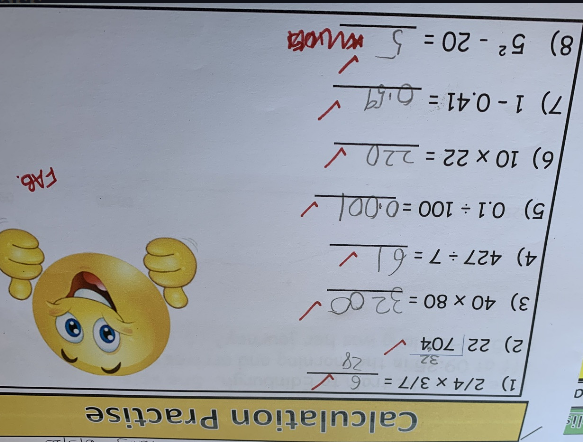 Calculation Practise
1) 2/4 x 3/7 = 6
28
32
2) 22 704
3) 40 x 80 = 3200
4) 427 ÷ 7 = 61
5) 0.1 ÷ 100 = 0.001
6) 10 x 22 = 220
7) 1 - 0.41 = 0.59
8) 5² - 20 = 5
FAB.